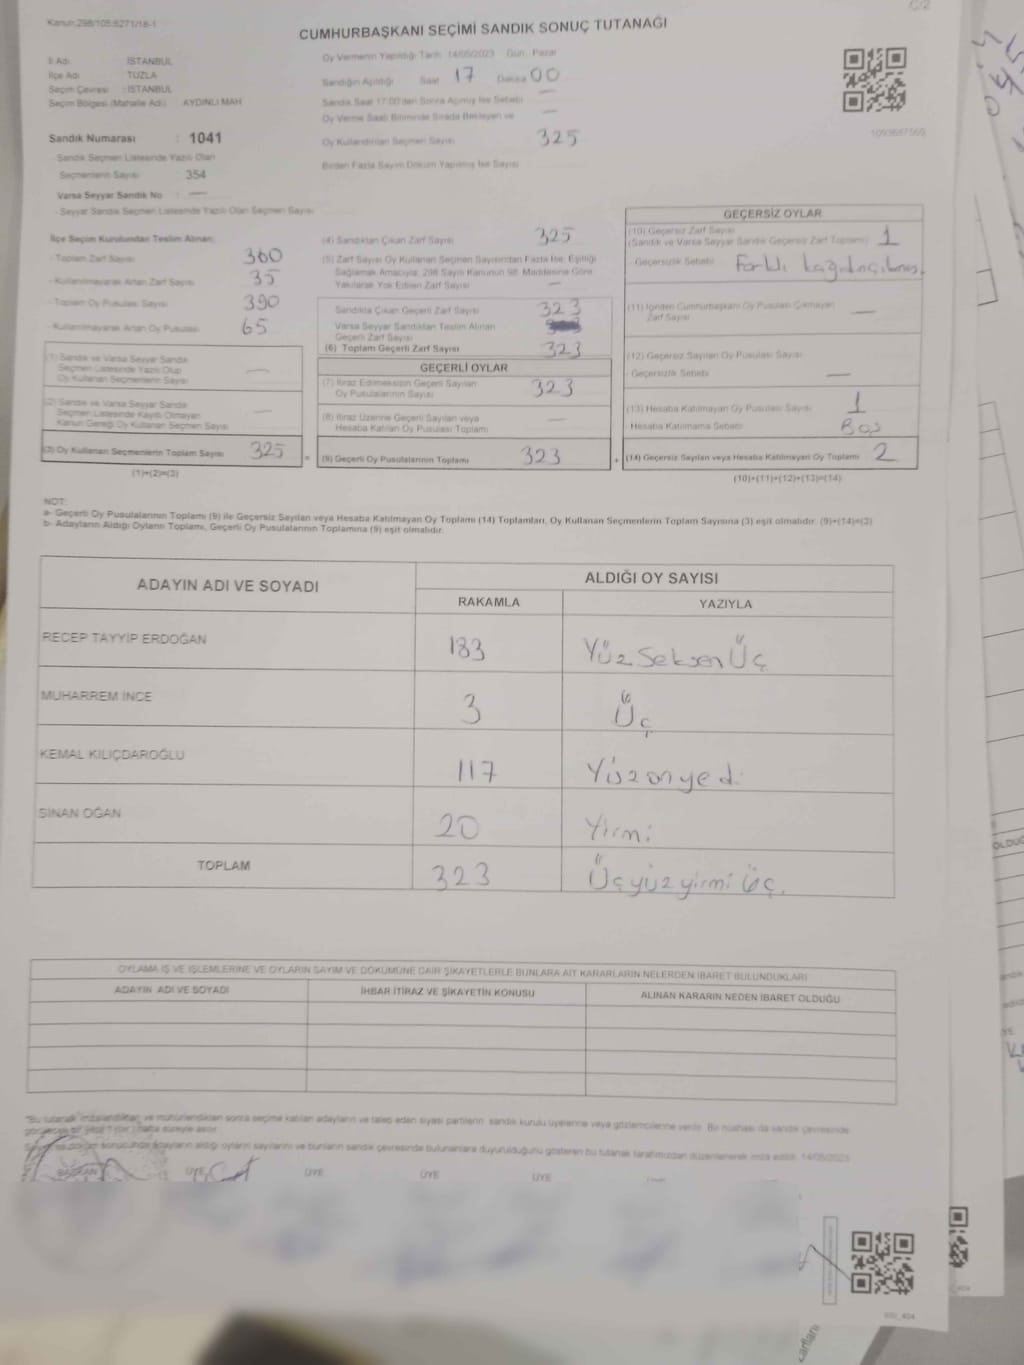 Kanun:298/105:6271/18-1
C/2
CUMHURBAŞKANI SEÇİMİ SANDIK SONUÇ TUTANAĞI
İl Adı : İSTANBUL
İlçe Adı : TUZLA
Seçim Çevresi : İSTANBUL
Seçim Bölgesi (Mahalle Adı) : AYDINLI MAH
Oy Vermenin Yapıldığı Tarih 14/05/2023 Gün Pazar
Sandığın Açıldığı Saat 17 Dakika 00
Sandık Saat 17:00'den Sonra Açılmış İse Sebebi —
Oy Verme Saati Bitiminde Sırada Bekleyen ve —
Oy Kullandırılan Seçmen Sayısı 325
Birden Fazla Sayım Döküm Yapılmış İse Sayısı
1093687569
Sandık Numarası : 1041
- Sandık Seçmen Listesinde Yazılı Olan
Seçmenlerin Sayısı : 354
Varsa Seyyar Sandık No : —
- Seyyar Sandık Seçmen Listesinde Yazılı Olan Seçmen Sayısı
İlçe Seçim Kurulundan Teslim Alınan;
- Toplam Zarf Sayısı 360
- Kullanılmayarak Artan Zarf Sayısı 35
- Toplam Oy Pusulası Sayısı 390
- Kullanılmayarak Artan Oy Pusulası 65
(1) Sandık ve Varsa Seyyar Sandık
Seçmen Listesinde Yazılı Olup
Oy Kullanan Seçmenlerin Sayısı —
(2) Sandık ve Varsa Seyyar Sandık
Seçmen Listesinde Kayıtlı Olmayan
Kanun Gereği Oy Kullanan Seçmen Sayısı —
(3) Oy Kullanan Seçmenlerin Toplam Sayısı 325 =
(1)+(2)=(3)
(4) Sandıktan Çıkan Zarf Sayısı 325
(5) Zarf Sayısı Oy Kullanan Seçmen Sayısından Fazla İse, Eşitliği
Sağlamak Amacıyla; 298 Sayılı Kanunun 98. Maddesine Göre
Yakılarak Yok Edilen Zarf Sayısı —
Sandıkta Çıkan Geçerli Zarf Sayısı 323
Varsa Seyyar Sandıktan Teslim Alınan
Geçerli Zarf Sayısı
(6) Toplam Geçerli Zarf Sayısı 323
GEÇERLİ OYLAR
(7) İtiraz Edilmeksizin Geçerli Sayılan
Oy Pusulalarının Sayısı 323
(8) İtiraz Üzerine Geçerli Sayılan veya
Hesaba Katılan Oy Pusulası Toplamı —
(9) Geçerli Oy Pusulalarının Toplamı 323 +
GEÇERSİZ OYLAR
(10) Geçersiz Zarf Sayısı
(Sandık ve Varsa Seyyar Sandık Geçersiz Zarf Toplamı) 1
- Geçersizlik Sebebi: Farklı
(11) İçinden Cumhurbaşkanı Oy Pusulası Çıkmayan
Zarf Sayısı —
(12) Geçersiz Sayılan Oy Pusulası Sayısı
- Geçersizlik Sebebi —
(13) Hesaba Katılmayan Oy Pusulası Sayısı 1
- Hesaba Katılmama Sebebi: Boş
(14) Geçersiz Sayılan veya Hesaba Katılmayan Oy Toplamı 2
(10)+(11)+(12)+(13)=(14)
NOT:
a- Geçerli Oy Pusulalarının Toplamı (9) ile Geçersiz Sayılan veya Hesaba Katılmayan Oy Toplamı (14) Toplamları, Oy Kullanan Seçmenlerin Toplam Sayısına (3) eşit olmalıdır. (9)+(14)=(3)
b- Adayların Aldığı Oyların Toplamı, Geçerli Oy Pusulalarının Toplamına (9) eşit olmalıdır.
ADAYIN ADI VE SOYADI ALDIĞI OY SAYISI
RAKAMLA YAZIYLA
RECEP TAYYİP ERDOĞAN 183 Yüz Seksen Üç
MUHARREM İNCE 3 Üç
KEMAL KILIÇDAROĞLU 117 Yüzonyedi
SİNAN OĞAN 20 Yirmi
TOPLAM 323 Üçyüzyirmi üç.
OYLAMA İŞ VE İŞLEMLERİNE VE OYLARIN SAYIM VE DÖKÜMÜNE DAİR ŞİKAYETLERLE BUNLARA AİT KARARLARIN NELERDEN İBARET BULUNDUKLARI
ADAYIN ADI VE SOYADI İHBAR İTİRAZ VE ŞİKAYETİN KONUSU ALINAN KARARIN NEDEN İBARET OLDUĞU
*Bu tutanak imzalandıktan ve mühürlendikten sonra seçime katılan adayların ve talep eden siyasi partilerin sandık kurulu üyelerine veya gözlemcilerine verilir. Bir nüshası da sandık çevresinde
bir hafta süreyle asılır.
sonucunda adayların aldığı oyların sayılarını ve bunların sandık çevresinde bulunanlara duyurulduğunu gösteren bu tutanak tarafımızdan düzenlenerek imza edildi. 14/05/2023
BAŞKAN ÜYE ÜYE ÜYE ÜYE